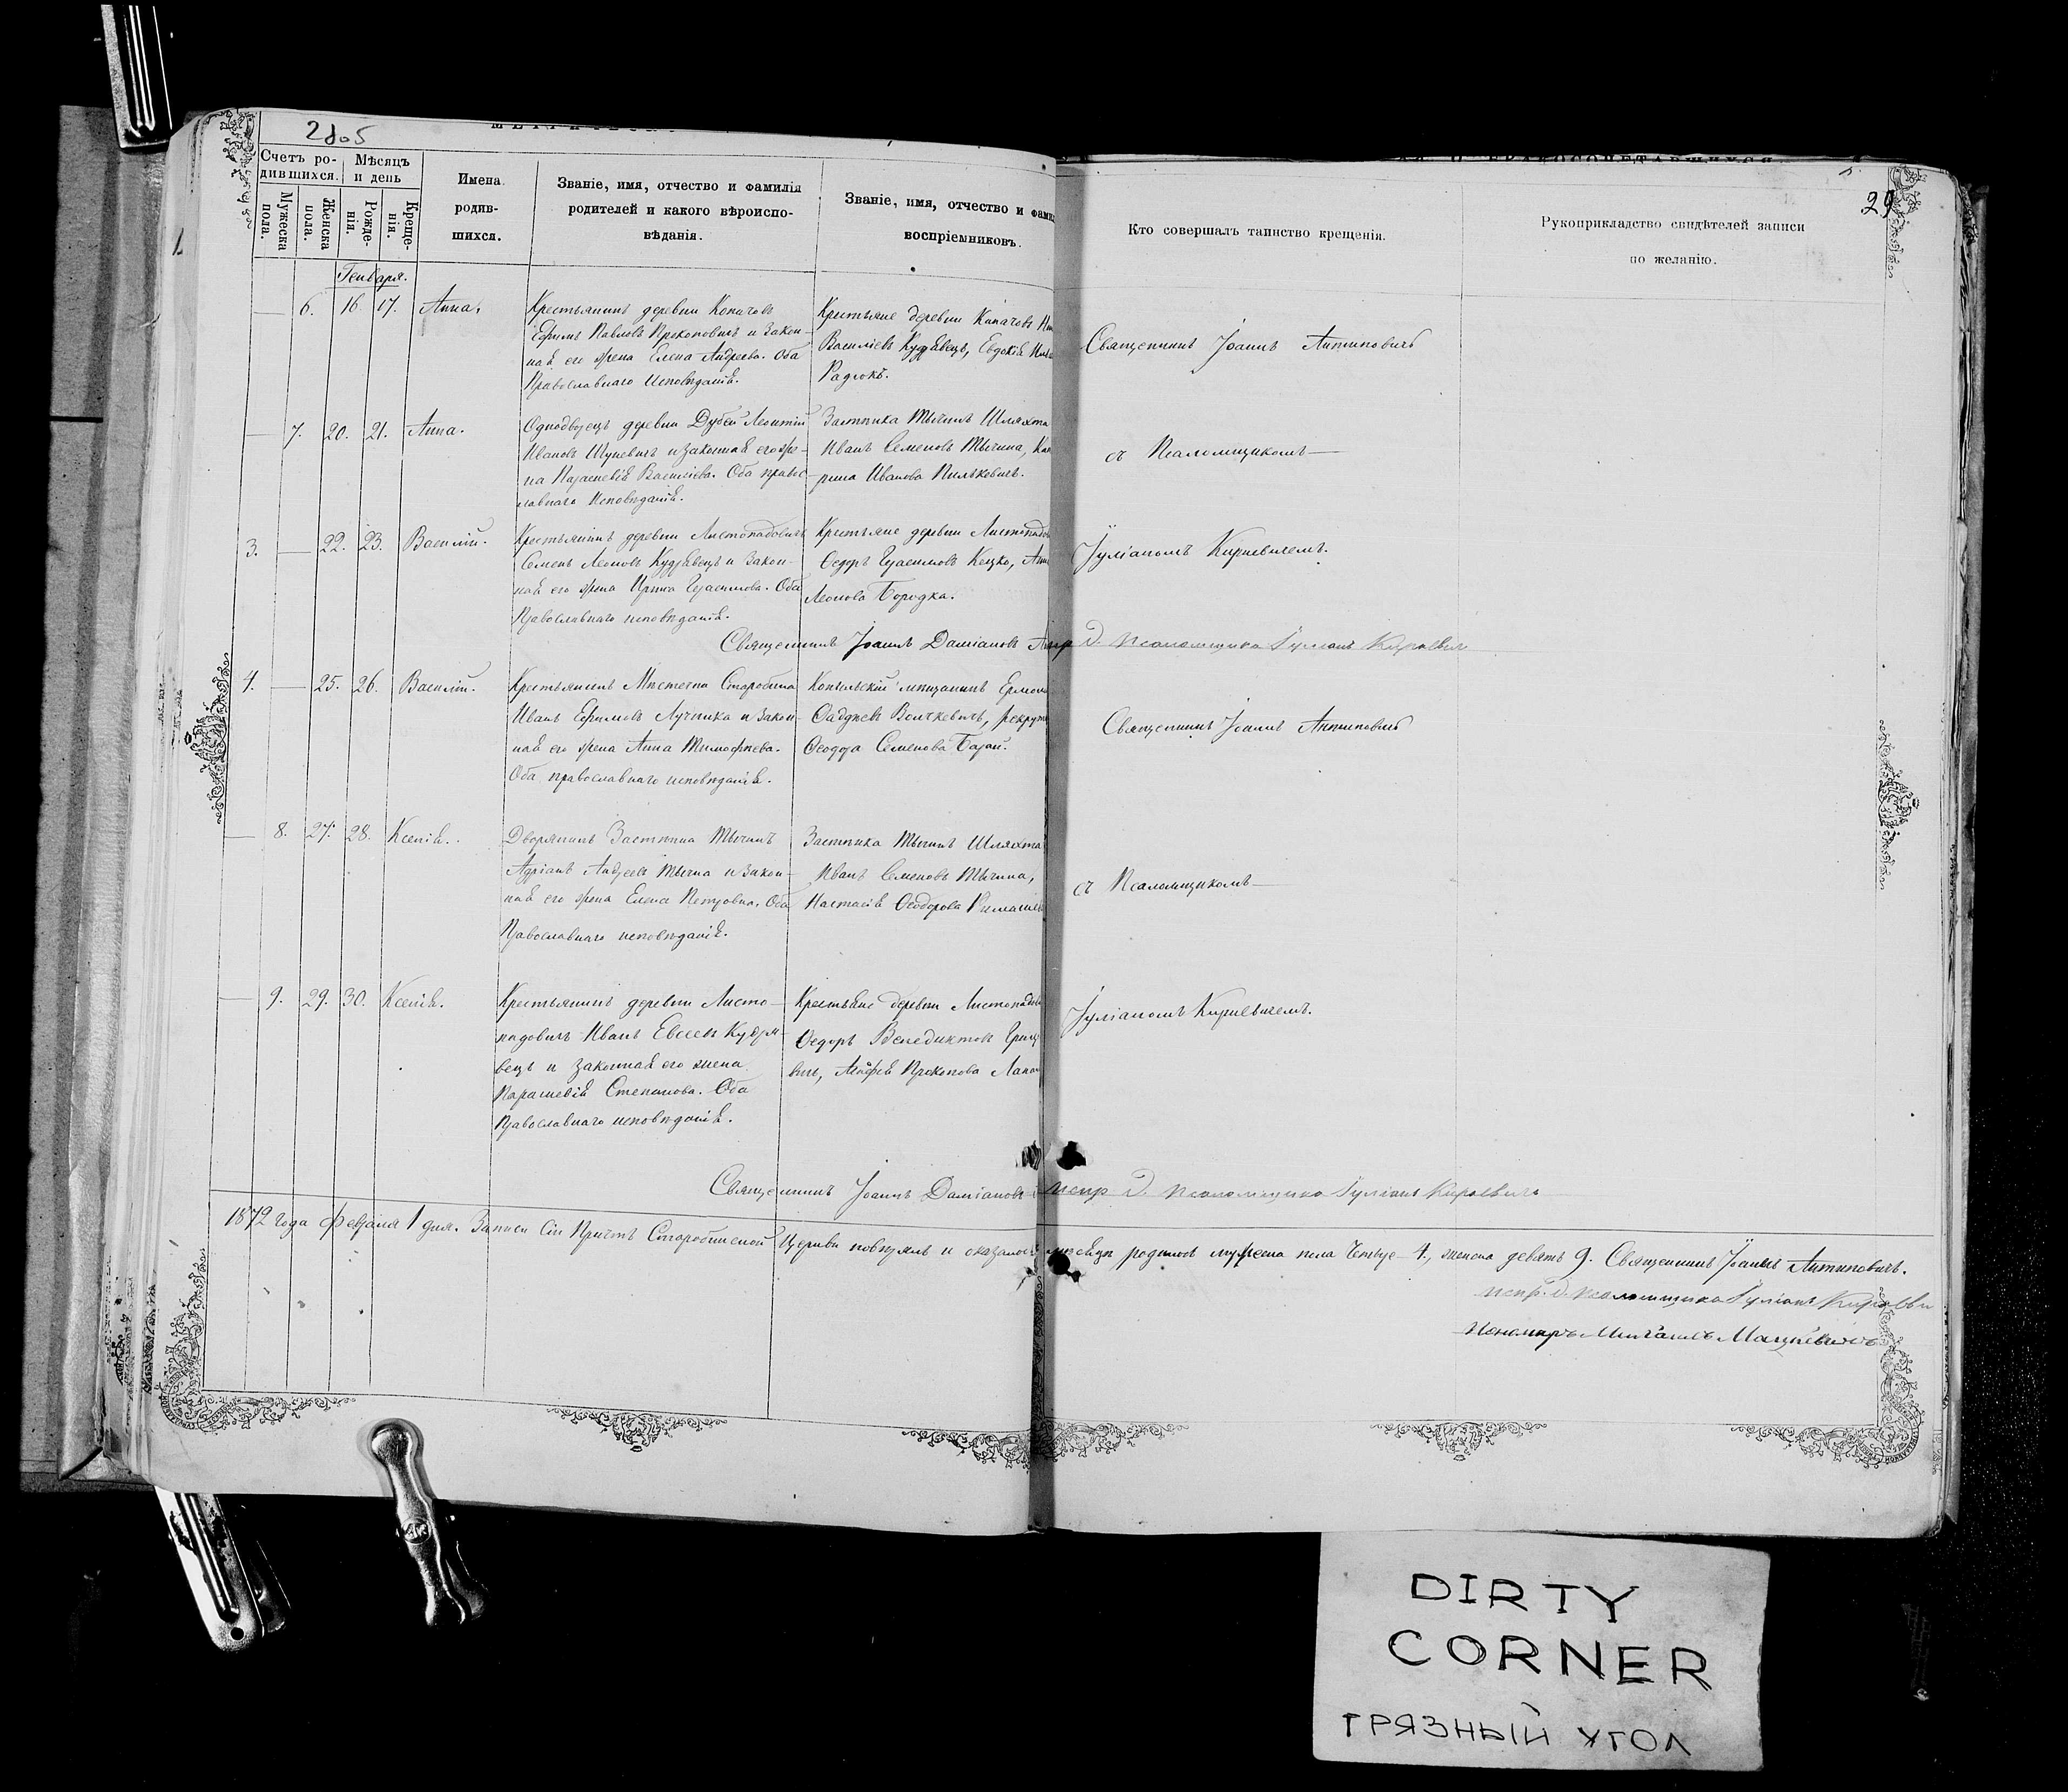 2805
29
Счетъ ро-
дившихся.
Мѣсяцъ
и день
Мужеска
пола.
Женска
пола.
Рожде-
нія.
Креще-
нія.
Имена
родив-
шихся.
Званіе, имя, отчество и фамилія
родителей и какого вѣроиспо-
вѣданія.
Званіе, имя, отчество и фами
воспріемниковъ.
Кто совершалъ таинство крещенія.
Рукоприкладство свидѣтелей записи
по желанію.
Генваря.
6. 16. 17. Анна.
Крестьянинъ деревни Копачовъ
Ефримъ Павловъ Прокоповичъ и закон-
ная его жена Елена Андреева. Оба
Православнаго Исповѣданія.
Крестьяне деревни Капачовъ
Василіевъ Кудравецъ, Евдокія
Радюкъ.
Священникъ Іоаннъ Антиповичъ
7. 20. 21. Анна.
Однодворецъ деревни Дубей Леонтій
Ивановъ Шуневичъ и законная его же-
на Параскевія Василіева. Оба право-
славнаго Исповѣданія.
Застѣнка Тычинъ Шляхта
Иванъ Семеновъ Тычина,
рина Иванова Пильковичъ.
съ Псаломщикомъ
3. 22. 23. Василій.
Крестьянинъ деревни Листопадовичъ
Семенъ Леоновъ Кудравецъ и закон-
ная его жена Ирина Герасимова. Оба
Православнаго исповѣданія.
Крестьяне деревни Листопадов
Ѳедоръ Герасимовъ Кецко,
Леонова Бородка.
Іуліаномъ Кириевичемъ.
Священникъ Іоаннъ Даміановъ д. псаломщика Іуліанъ Кириевич
4. 25. 26. Василій.
Крестьянинъ Мѣстечка Старобина
Иванъ Ефримовъ Лучинка и закон-
ная его жена Анна Тимофѣева.
Оба православнаго исповѣданія.
Копыльскій мѣщанинъ
Ѳаддеевъ Величкевичъ,
Ѳеодора Семенова
Священникъ Іоаннъ Антиповичъ
8. 27. 28. Ксенія.
Дворянинъ Застѣнка Тычинъ
Адріанъ Андреевъ Тычина и закон-
ная его жена Елена Петровна. Оба
Православнаго исповѣданія.
Застѣнка Тычинъ Шляхта
Иванъ Семеновъ Тычина,
Настасія Ѳеодорова
съ Псаломщикомъ
9. 29. 30. Ксенія.
Крестьянинъ деревни Листо-
падовичъ Иванъ Евсеевъ Кудря-
вецъ и законная его жена
Параскевія Степанова. Оба
Православнаго исповѣданія.
Крестьяне деревни Листопадов
Ѳедоръ Венедиктовъ
вичъ, Прокопова
Іуліаномъ Кириевичемъ.
Священникъ Іоаннъ Даміановъ испр д. псаломщика Іуліанъ Кириевичъ
1872 года февраля 1 дня. Записи сіи Причтъ Старобинской Церкви повѣрялъ и оказалось родилось мужеска пола четыре 4., женска девять 9. Священникъ Іоаннъ Антиповичъ.
испр. д. псаломщика Іуліанъ Кириеви
Пономарь Михаилъ Мацкевичъ
DIRTY
CORNER
ГРЯЗНЫЙ УГОЛ